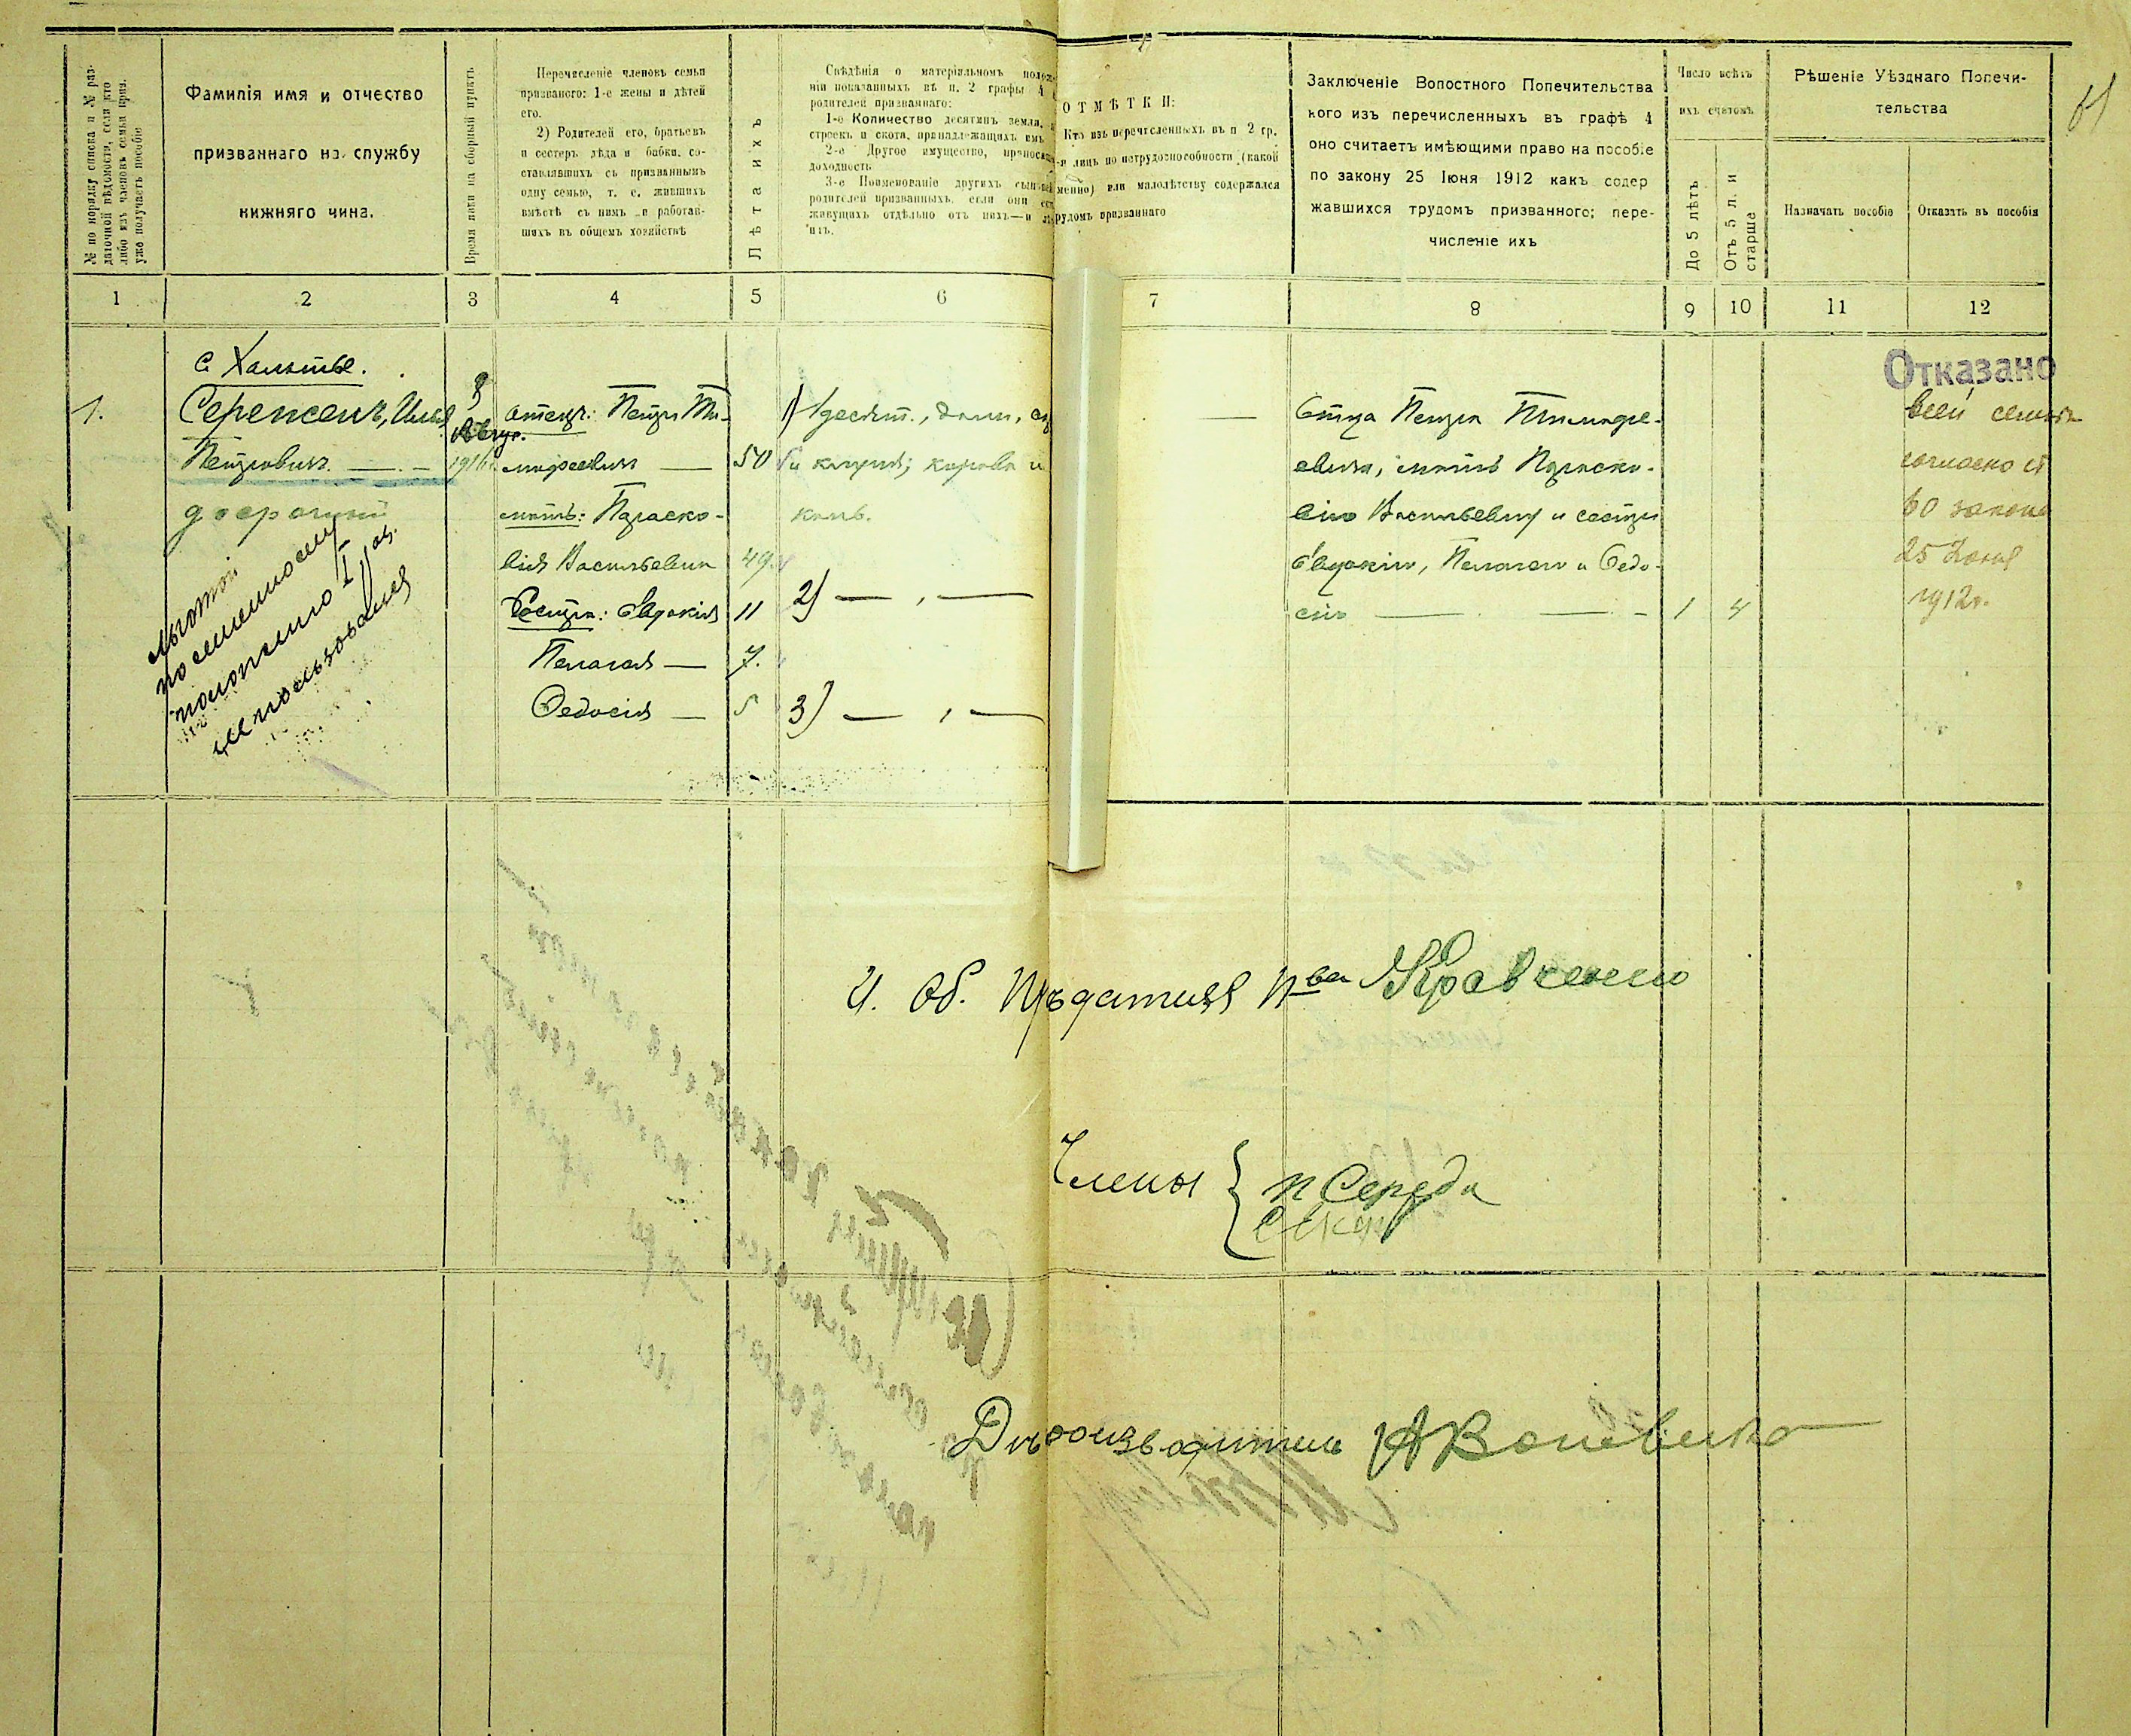 № по порядку списка и № раз-
даточной вѣдомости, если кто
либо изъ членовъ семьи приз.
уже получаетъ пособіе
Фамилія имя и отчество
призваннаго на службу
нижняго чина.
Время явки на сборный пунктъ
Перечисленіе членовъ семьи
призваного: 1-е жены и дѣтей
его.
2) Родителей его, братьевъ
и сестеръ дѣда и бабки, со-
ставлявшихъ съ призваннымъ
одну семью, т. е. жившихъ
вмѣстѣ съ нимъ и работав-
шихъ въ общемъ хозяйствѣ
Лѣта ихъ
Свѣдѣнія о матеріяльномъ полож-
ніи показанныхъ въ п. 2 графы 4
родителей призваннаго:
1-е Количество десятинъ земли,
строекъ и скота, принадлежащихъ имъ
2-е Другое имущество, приносящ
доходность
3-е Поименованіе других сыновей
родителей призванныхъ, если они ест
живущихъ отдѣльно отъ нихъ—и
ихъ.
ОТМѢТКИ:
Кто изъ перечисленныхъ въ п 2 гр.
-я лицъ по нетрудоспособности (какой
менно) или малолѣтству содержался
рудомъ призваннаго
Заключеніе Вопостного Попечительства
кого изъ перечисленныхъ въ графѣ 4
оно считаетъ имѣющими право на пособіе
по закону 25 Іюня 1912 какъ содер
жавшихся трудомъ призванного; пере-
численіе ихъ
Число всѣхъ
ихъ счетомъ
До 5 лѣтъ
Отъ 5 л. и
старше
Рѣшеніе Уѣзднаго Попечи-
тельства
Назначать пособіе
Отказать въ пособія
1 2 3 4 5 6 7 8 9 10 11 12
1.
Петровичъ
досрочный
льготой
по семейному
положенію I раз.
не пользовался
8
Август.
1916
отецъ: Петръ Ти-
мофеевичъ — 50
мать: Параско-
вія Васильевна 49
Сестры: Евдокія 11
Пелагея — 7.
Федосія — 5
1) 1 десят., домъ,
корова и
конь.
2) — „ —
3) — „ —
—
Отца Петра Тимофе-
евича, мать Параско-
вію Васильевну и сестры
Евдокію, Пелагею и Федо-
сію — — - 1 4
Отказано
всей семьѣ
согласно ст
60 закона
25 Іюня
1912г.
И. Об. Предсѣдателя П-ва Кравченко
Члены { П Середа
Дѣлопроизводитель